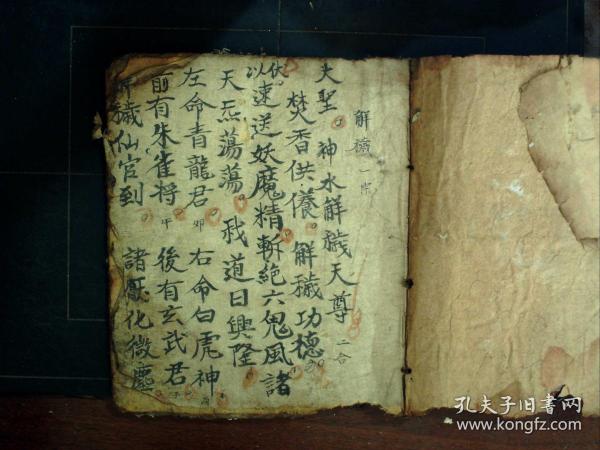 解穢一宗
大聖神水解穢天尊 二合
焚香供養 解穢功德
伏以速送妖魔精斬絕六鬼風諸
天炁蕩蕩 我道日興隆
左命青龍君 卯 右命白虎神 酉
前有朱雀將 午 後有玄武君 子
解穢仙官到 諸厭化微塵
孔夫子旧书网
www.kongfz.com